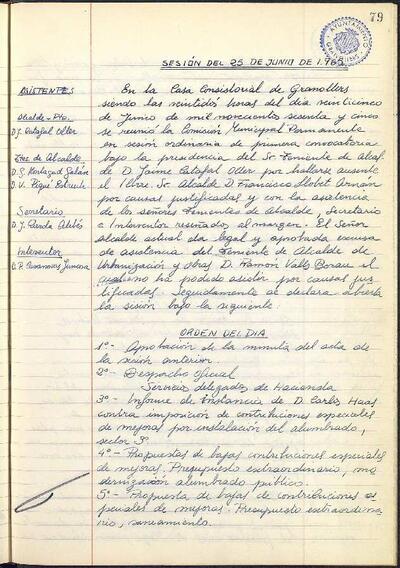 79
AYUNTAMIENTO
SESIÓN DEL 25 DE JUNIO DE 1.965
ASISTENTES
Alcalde-Pte.
D. J. Catafal Oller
Ttes. de Alcalde
D. S.
D. V. Piqué
Secretario
D. J. Parola
Interventor
D. P. Casanovas
En la Casa Consistorial de Granollers
siendo las veintidos horas del dia veinticinco
de Junio de mil novecientos sesenta y cinco
se reunió la Comisión Municipal Permanente
en sesión ordinaria de primera convocatoria
bajo la presidencia del Sr. Teniente de Alcal.
D. Jaime Catafal Oller por hallarse ausente
el Iltre. Sr. Alcalde D. Francisco Llobet Arnan
por causas justificadas y con la asistencia
de los señores Tenientes de Alcalde, Secretario
e Interventor reseñados al margen. El Señor
Alcalde actual da legal y aprobada excusa
de asistencia del Teniente de Alcalde de
Urbanización y obras D. Ramón Valls Borau el
no ha podido asistir por causas jus
tificadas. Seguidamente al declara abierta
la sesión bajo la siguiente:
ORDEN DEL DIA
1º - Aprobación de la minuta del acta de
la sesión anterior.
2º - Despacho Oficial
Servicios delegados de Hacienda
3º - Informe de Instancia de D. Carlos Haas
contra imposición de contribuciones especiales
de mejoras por instalación del alumbrado,
sector 3º
4º - Propuestas de bajas contribuciones especiales
de mejoras. Presupuesto extraordinario, mo
dernización alumbrado público.
5º - Propuesta de bajas de contribuciones es
peciales de mejoras. Presupuesto extraordina
rio, saneamiento.